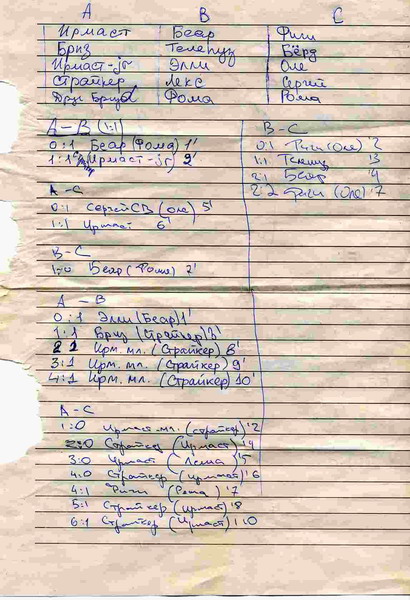 A B C
Ирмаст Беар Фиги
Бриз Телепуз Бёрд
Ирмаст-jr Элли Оле
Страйкер Лекс Сергей
Друг Бриза Фома Рома
A-B (1:1)
0:1 Беар (Фома) 1'
1:1 Ирмаст-jr 2'
A-C
0:1 Сергей СВ (Оле) 5'
1:1 Ирмаст 6'
B-C
1:0 Беар (Фома) 2'
B-C
0:1 Фиги (Оле) '2
1:1 '3
2:1 Беар '4
2:2 Фиги (Оле) '7
A-B
0:1 Элли (Беар) 1'
1:1 Бриз (Страйкер) 3'
2:1 Ирм. мл. (Страйкер) 8'
3:1 Ирм. мл. (Страйкер) 9'
4:1 Ирм. мл. (Страйкер) 10'
A-C
1:0 Ирмаст мл. (Страйкер) '2
2:0 Страйкер (Ирмаст) '4
3:0 Ирмаст '5
4:0 Страйкер (Ирмаст) '6
4:1 Фиги (Рома) '7
5:1 Страйкер (Ирмаст) '8
6:1 Страйкер (Ирмаст) '10